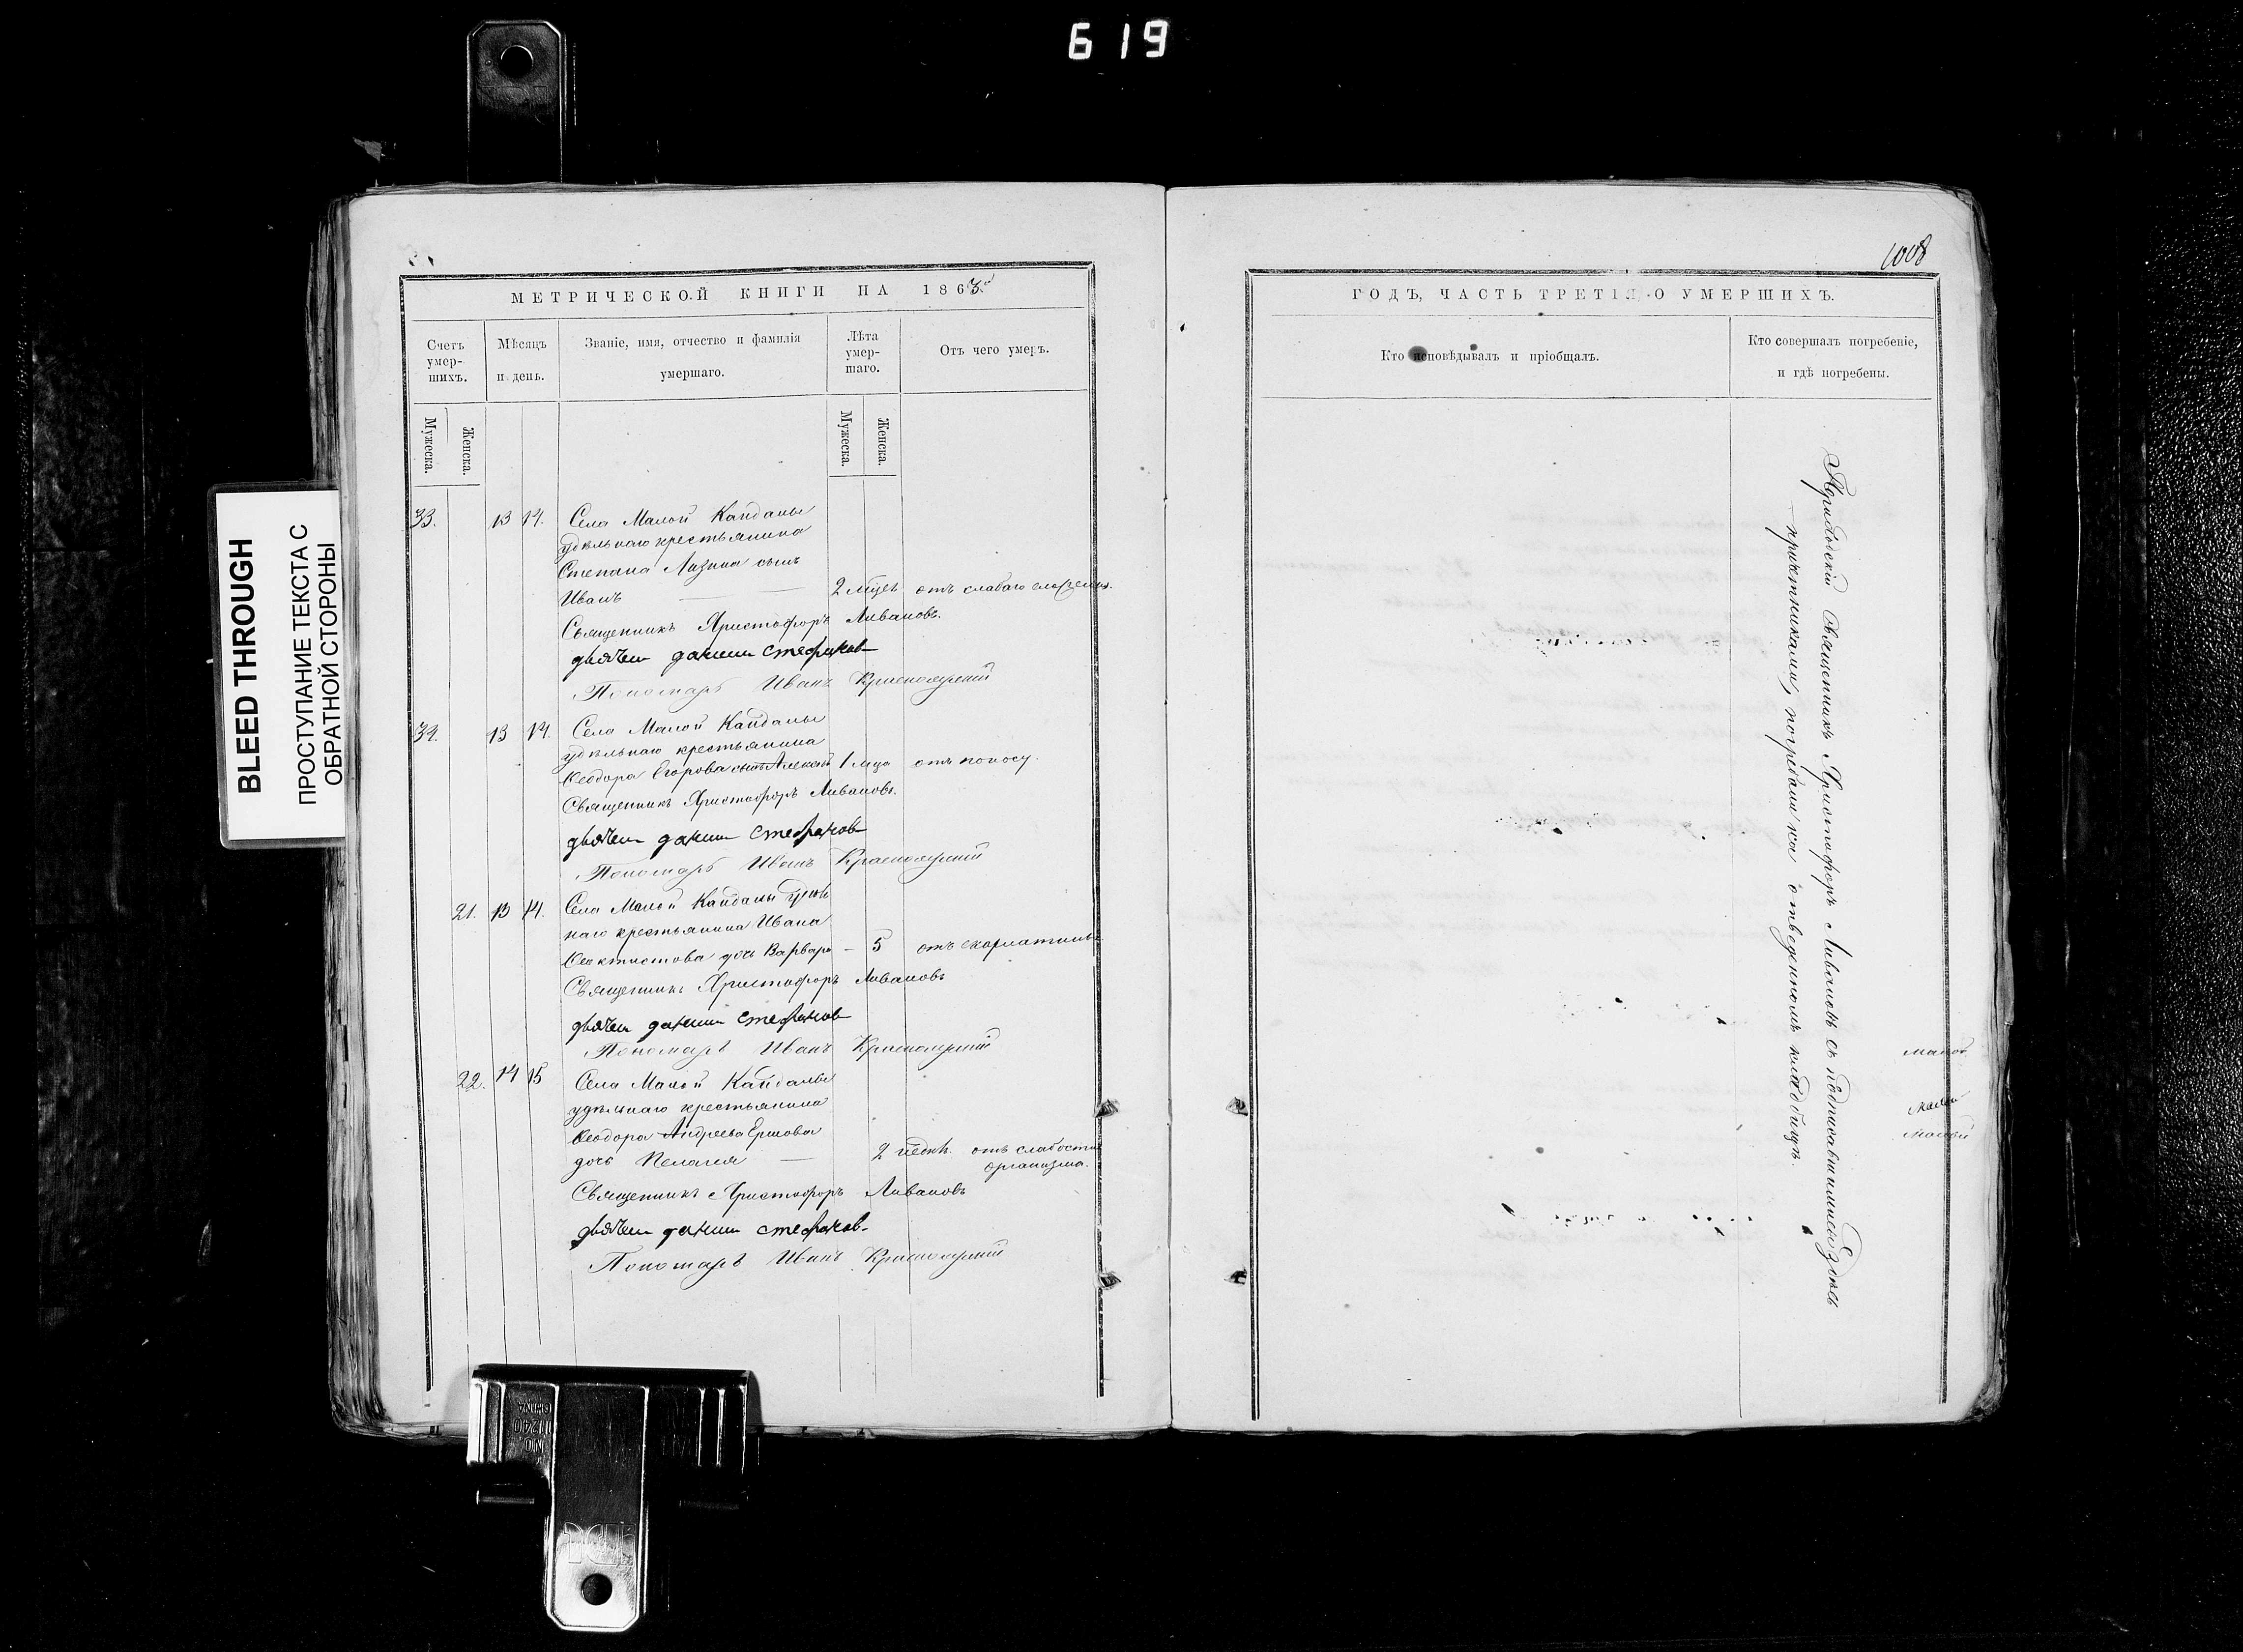 619
BLEED THROUGH
ПРОСТУПАНИЕ ТЕКСТА С
ОБРАТНОЙ СТОРОНЫ
МЕТРИЧЕСКОЙ КНИГИ НА 1863
Счетъ
умер-
шихъ.
Мѣсяцъ
и день.
Званіе, имя, отчество и фамилія
умершаго.
Лѣта
умер-
шаго.
Отъ чего умеръ.
Мужеска.
Женска.
Мужеска.
Женска.
33. 13 14. Села Малой Кандалы
удѣльнаго крестьянина
Степана Лизина сынъ
Иванъ 2 мѣсц. отъ слабаго сложенія.
Священникъ Христофоръ Ливановъ.
дьячекъ данiил стефанов
Пономарь Иванъ
34. 13 14. Села Малой Кандалы
удѣльнаго крестьянина
Ѳеодора Егорова сынъ Алексѣй 1 мца отъ поносу.
Священникъ Христофоръ Ливановъ.
дьячекъ данiил стефанов
Пономарь Иванъ
21. 13 14. Села Малой Кандалы удѣль
наго крестьянина Ивана
Ѳеоктистова дочь Варвара – 5 отъ скарлатины
Священникъ Христофоръ Ливановъ
дьячекъ данiил стефанов
Пономарь Иванъ
22. 14 15 Села Малой Кандалы
удѣльнаго крестьянина
Ѳеодора Андреева Ершова
дочь Пелагея — 2 недѣл. отъ слабости
организма.
Священникъ Христофоръ Ливановъ
дьячекъ данiил стефанов
Пономарь Иванъ
1008
ГОДЪ, ЧАСТЬ ТРЕТІЯ О УМЕРШИХЪ.
Кто исповѣдывалъ и пріобщалъ.
Кто совершалъ погребеніе,
и гдѣ погребены.
Приходскій Священникъ Христофоръ Ливановъ съ подписавшимися здѣсь
причетниками, погребали на отведенномъ кладбищѣ.
малой
малой
малой